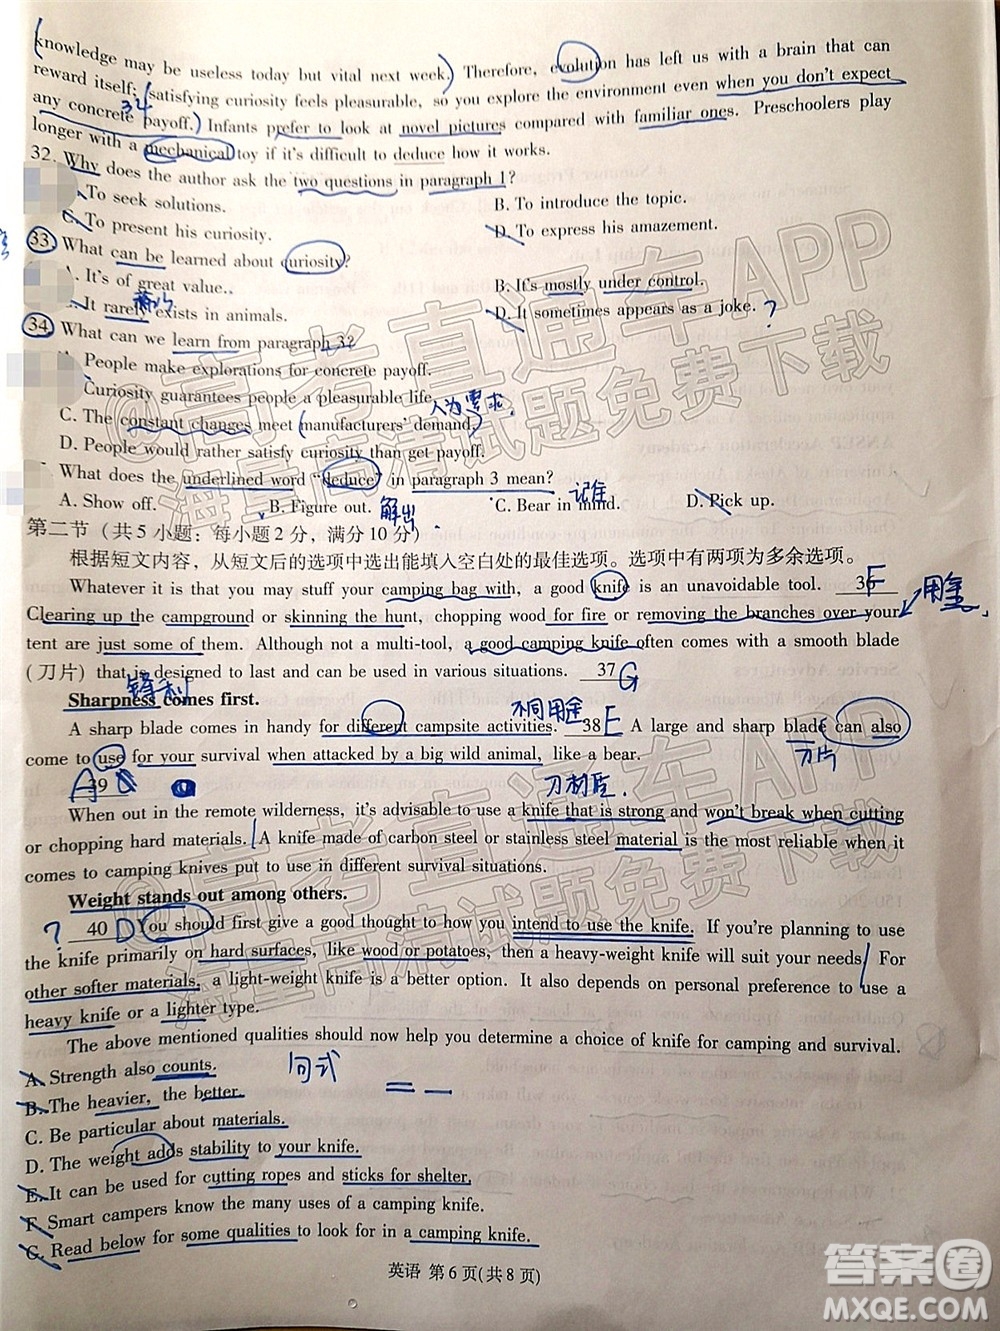 knowledge may be useless today but vital next week. Therefore, evolution has left us with a brain that can
reward itself; satisfying curiosity feels pleasurable, so you explore the environment even when you don't expect
any concrete payoff. Infants prefer to look at novel pictures compared with familiar ones. Preschoolers play
34
longer with a mechanical toy if it's difficult to deduce how it works.
32. Why does the author ask the two questions in paragraph 1?
To seek solutions.
B. To introduce the topic.
C. To present his curiosity.
D. To express his amazement.
33. What can be learned about curiosity?
A. It's of great value.
B. It's mostly under control.
It rarely exists in animals.
D. It sometimes appears as a joke. ?
34. What can we learn from paragraph 3?
People make explorations for concrete payoff.
Curiosity guarantees people a pleasurable life.
人为需求
C. The constant changes meet manufacturers' demand.
D. People would rather satisfy curiosity than get payoff.
What does the underlined word "deduce" in paragraph 3 mean?
A. Show off.
B. Figure out. 解出
C. Bear in mind. 记住
D. Pick up.
第二节 (共 5 小题; 每小题 2 分, 满分 10 分)
根据短文内容, 从短文后的选项中选出能填入空白处的最佳选项。选项中有两项为多余选项。
Whatever it is that you may stuff your camping bag with, a good knife is an unavoidable tool. 36 F
Clearing up the campground or skinning the hunt, chopping wood for fire or removing the branches over your 用途
tent are just some of them. Although not a multi-tool, a good camping knife often comes with a smooth blade
(刀片) that is designed to last and can be used in various situations. 37 G
锋利
Sharpness comes first.
不同用途
A sharp blade comes in handy for different campsite activities. 38 E A large and sharp blade can also
come to use for your survival when attacked by a big wild animal, like a bear.
刀片
A 39
刀材质
When out in the remote wilderness, it's advisable to use a knife that is strong and won't break when cutting
or chopping hard materials. A knife made of carbon steel or stainless steel material is the most reliable when it
comes to camping knives put to use in different survival situations.
Weight stands out among others.
? 40 D You should first give a good thought to how you intend to use the knife. If you're planning to use
the knife primarily on hard surfaces, like wood or potatoes, then a heavy-weight knife will suit your needs. For
other softer materials, a light-weight knife is a better option. It also depends on personal preference to use a
heavy knife or a lighter type.
The above mentioned qualities should now help you determine a choice of knife for camping and survival.
A. Strength also counts.
句式
B. The heavier, the better.
C. Be particular about materials.
D. The weight adds stability to your knife.
E. It can be used for cutting ropes and sticks for shelter.
F. Smart campers know the many uses of a camping knife.
G. Read below for some qualities to look for in a camping knife.
英语 第 6 页(共 8 页)
@高考直通车APP
海量高清试题免费下载
@高考直通车APP
海量高清试题免费下载
答案圈
MXQE.COM